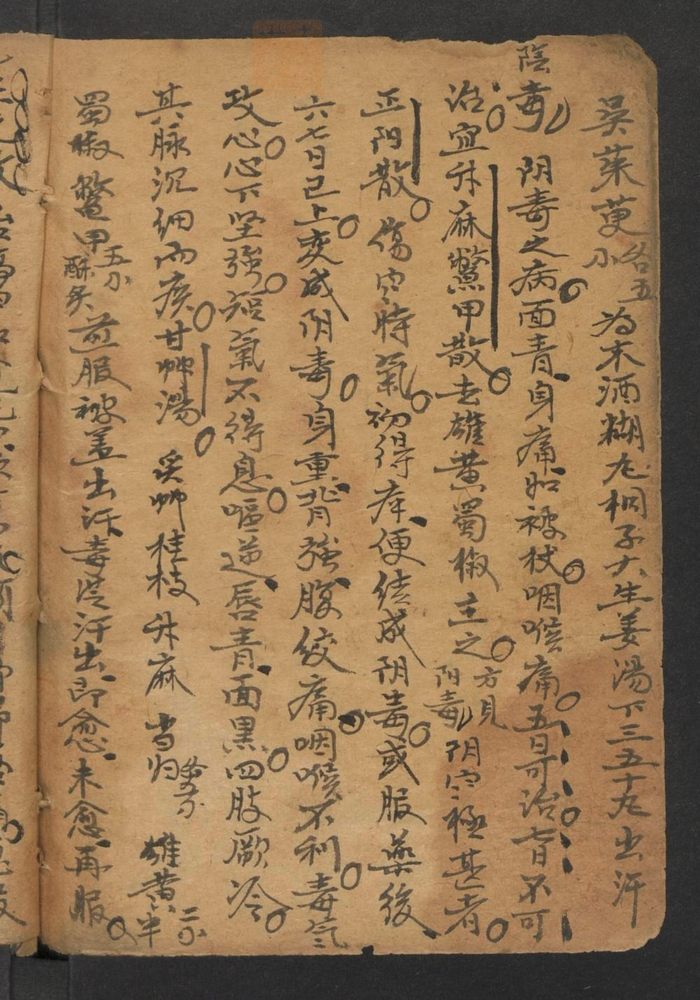 吴茱萸各五分为末酒糊丸桐子大生姜汤下三五十丸出汗
陰毒 阴毒之病面青身痛如被杖咽喉痛五日可治七日不可
治宜升麻鱉甲散去雄黄蜀椒主之方見阳毒 阴寒極甚者
正阳散 傷寒時氣初得病便结成阴毒或服藥後
六七日已上变成阴毒身重背强腹绞痛咽喉不利毒氣
攻心心下坚强短氣不得息嘔逆唇青面黑四肢厥冷
其脉沉细而疾甘艸湯 炙艸桂枝升麻当归各二分 雄黄二分半
蜀椒鱉甲五分酥炙 煎服被盖出汗毒從汗出即愈未愈再服